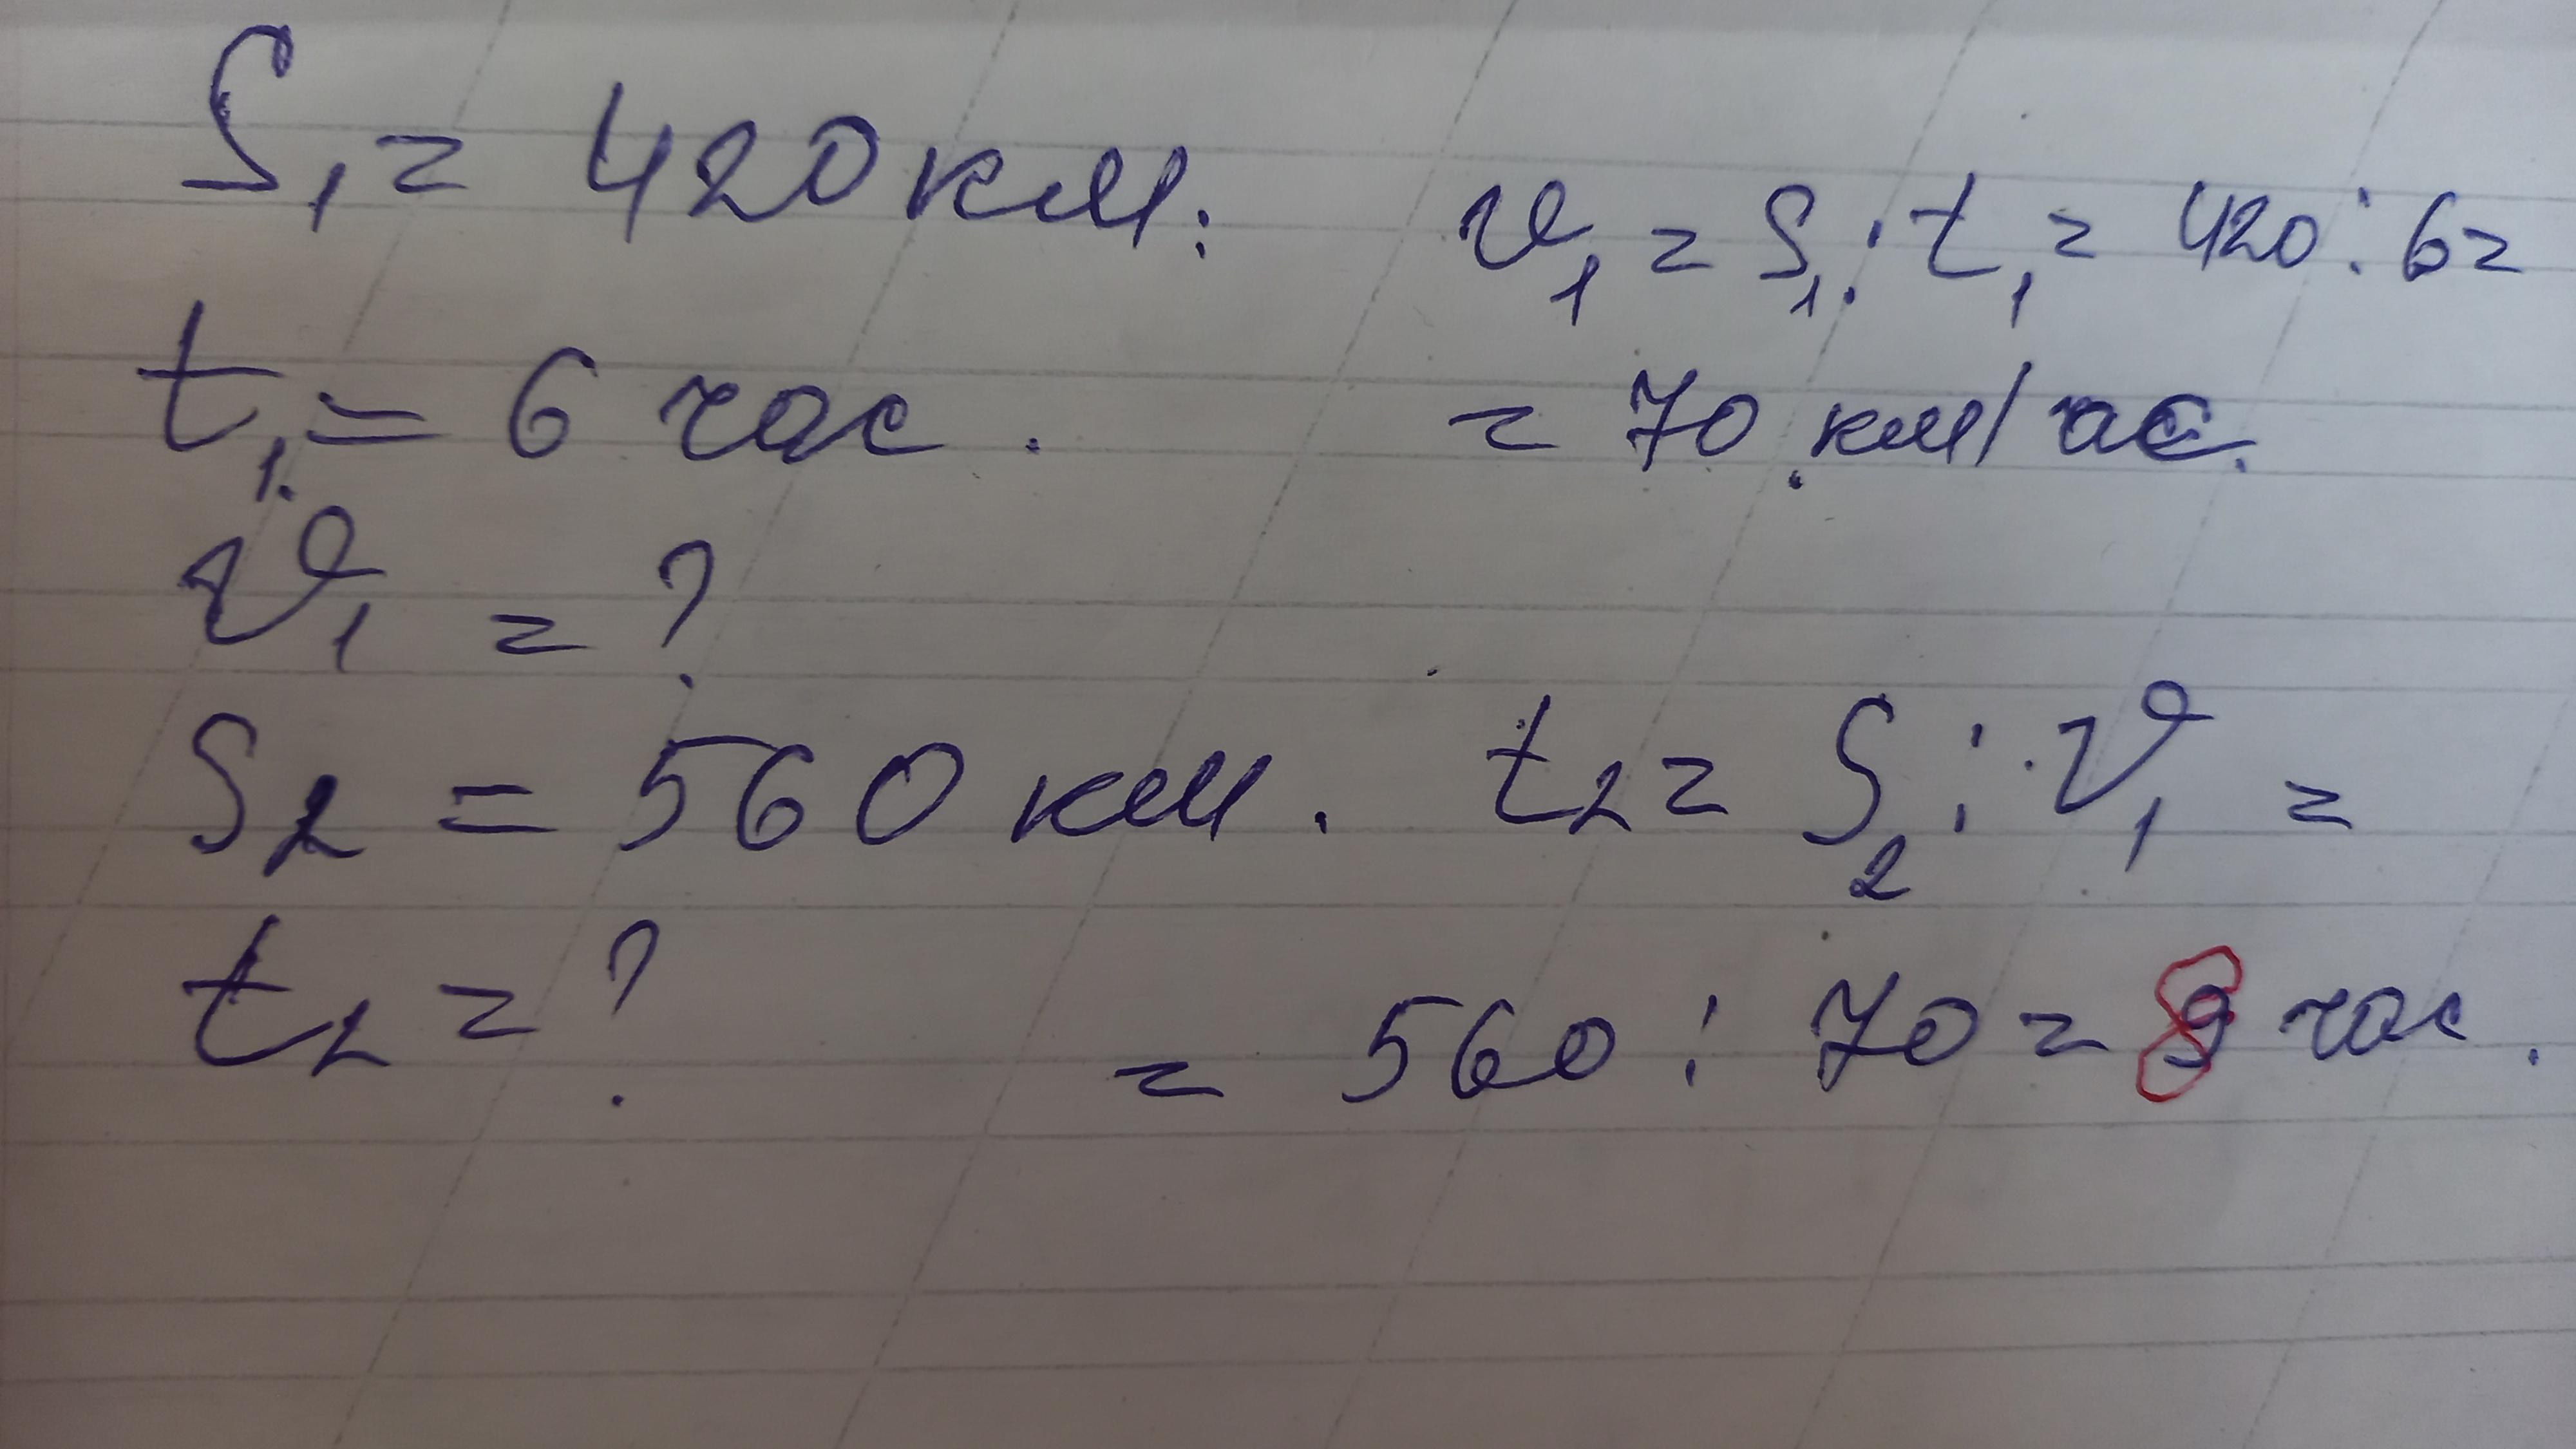 S₁ = 420 км.
t₁ = 6 час.
v₁ = ?
S₂ = 560 км.
t₂ = ?
v₁ = S₁ : t₁ = 420 : 6 =
= 70 км/час.
t₂ = S₂ : v₁ =
= 560 : 70 = 8 час.